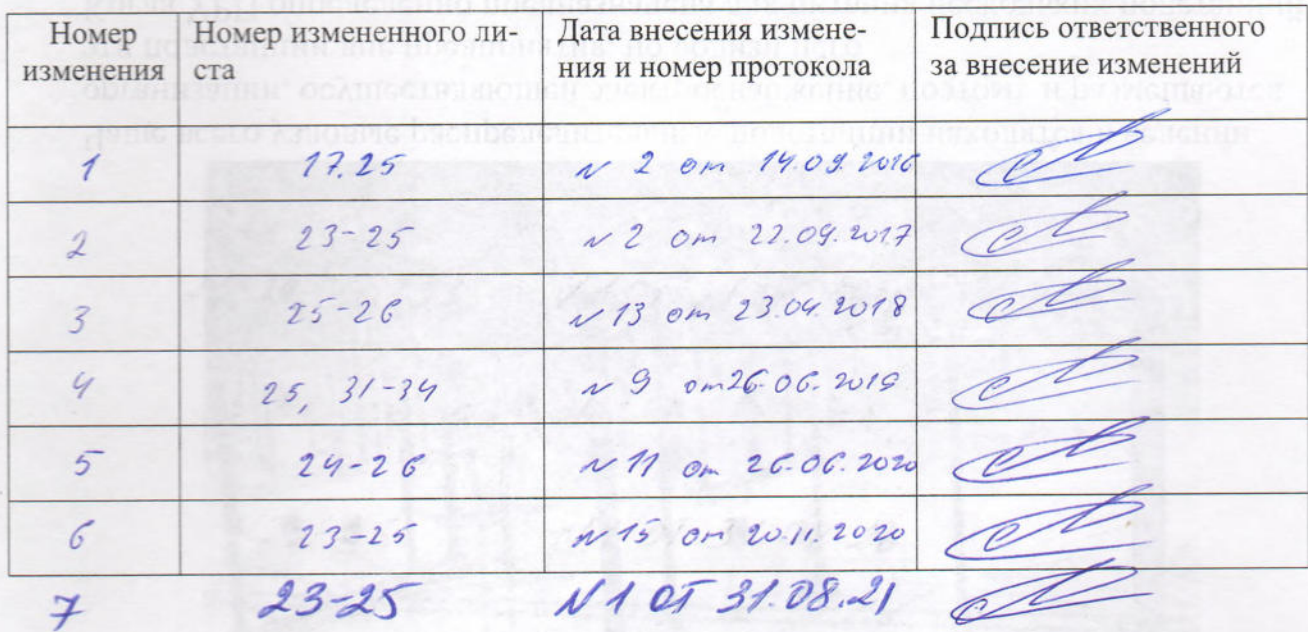 Номер изменения Номер измененного ли- Дата внесения измене- Подпись ответственного
ста ния и номер протокола за внесение изменений
1 17.25 N 2 от 14.09.2016
2 23-25 N 2 от 22.09.2017
3 25-26 N 13 от 23.04.2018
4 25, 31-34 N 9 от 26.06.2019
5 24-26 N 11 от 26.06.2020
6 23-25 N 15 от 20.11.2020
7 23-25 N 1 ОТ 31.08.21